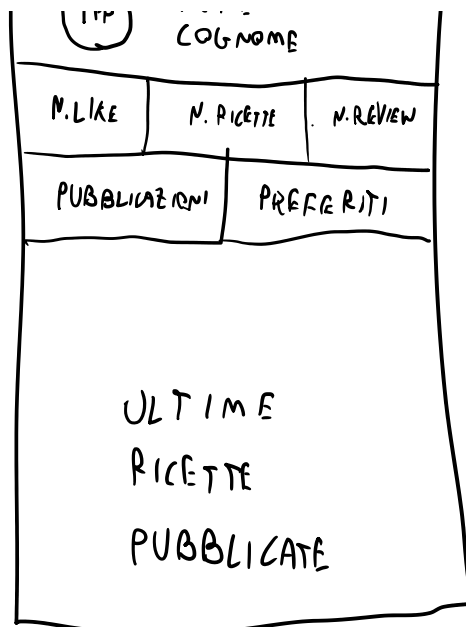 COGNOME
N.LIKE N. RICETTE N.REVIEW
PUBBLICAZIONI PREFERITI
ULTIME
RICETTE
PUBBLICATE